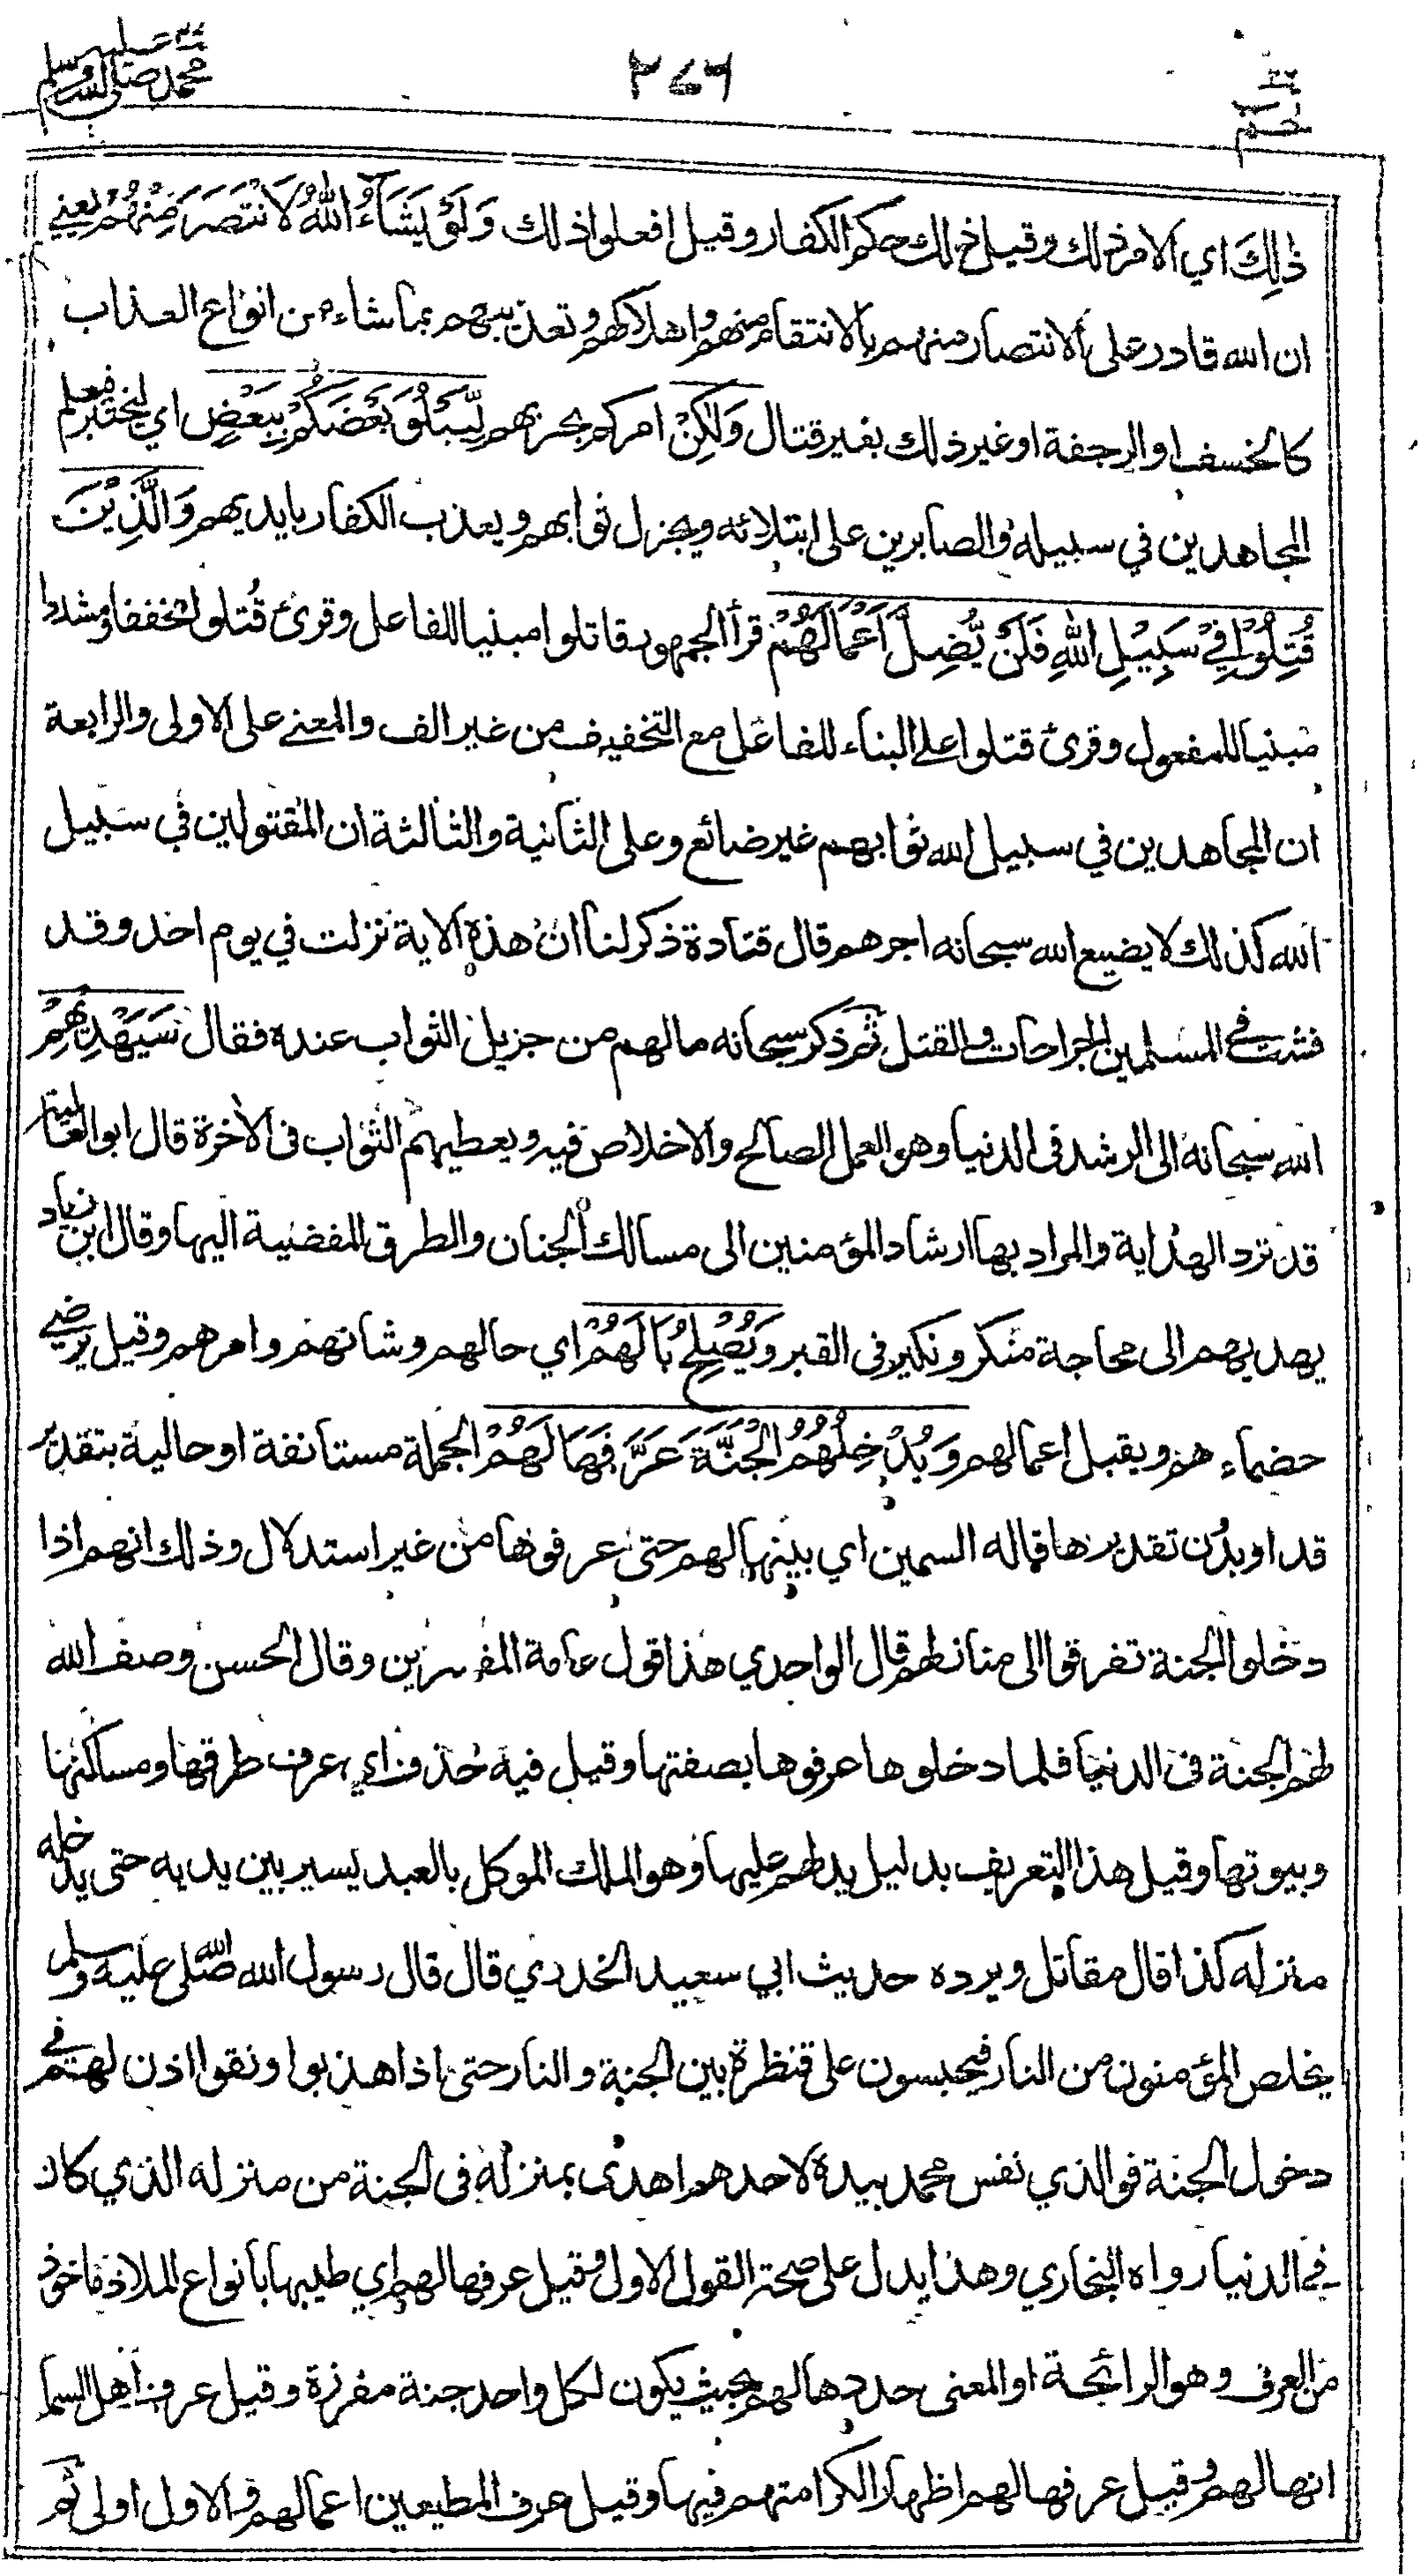 حٰم ٢٦
٣٧٦
محمد صلى الله عليه وسلم
ذٰلِكَ اي الامر ذلك وقيل ذلك حكم الكفار وقيل افعلوا ذلك وَلَوْ يَشَآءُ اللّٰهُ لَانْتَصَرَ مِنْهُمْ يعني
ان الله قادر على الانتصار منهم بالانتقام منهم واهلاكهم وتعذيبهم بما شاء من انواع العذاب
كالخسف او الرجفة او غير ذلك بغير قتال وَلٰكِنْ امركم بحربهم لِّيَبْلُوَ بَعْضَكُمْ بِبَعْضٍ اي ليختبر فيعلم
المجاهدين في سبيله والصابرين على ابتلائه ويجزل ثوابهم ويعذب الكفار بايديهم وَالَّذِيْنَ
قُتِلُوْا فِيْ سَبِيْلِ اللّٰهِ فَلَنْ يُّضِلَّ اَعْمَالَهُمْ قرأ الجمهور قاتلوا مبنيا للفاعل وقرئ قُتلوا مخففا ومشددا
مبنيا للمفعول وقرئ قتلوا على البناء للفاعل مع التخفيف من غير الف والمعنى على الاولى والرابعة
ان المجاهدين في سبيل الله ثوابهم غير ضائع وعلى الثانية والثالثة ان المقتولين في سبيل
الله كذلك لا يضيع الله سبحانه اجرهم قال قتادة ذكر لنا ان هذه الاية نزلت في يوم احد وقد
فشت في المسلمين الجراحات والقتل ثم ذكر سبحانه ما لهم من جزيل الثواب عنده فقال سَيَهْدِيْهِمْ
الله سبحانه الى الرشد فى الدنيا وهو العمل الصالح والاخلاص فيه ويعطيهم الثواب فى الاخرة قال ابو العالية
قد ترد الهداية والمراد بها ارشاد المؤمنين الى مسالك الجنان والطرق المفضية اليها وقال ابن زياد
يهديهم الى محاجة منكر ونكير فى القبر وَيُصْلِحُ بَالَهُمْ اي حالهم وشانهم وامرهم وقيل يرضي
خصماءهم ويقبل اعمالهم وَيُدْخِلُهُمُ الْجَنَّةَ عَرَّفَهَا لَهُمْ الجملة مستانفة او حالية بتقدير
قد او بدون تقديرها قاله السمين اي بينها لهم حتى عرفوها من غير استدلال وذلك انهم اذا
دخلوا الجنة تفرقوا الى منازلهم قال الواحدي هذا قول عامة المفسرين وقال الحسن وصف الله
لهم الجنة فى الدنيا فلما دخلوها عرفوها بصفتها وقيل فيه حذف اي عرف طرقها ومساكنها
وبيوتها وقيل هذا التعريف بدليل يدلهم عليها وهو الملك الموكل بالعبد يسير بين يديه حتى يدخله
منزله كذا قال مقاتل ويرده حديث ابي سعيد الخدري قال قال رسول الله صلى الله عليه وسلم
يخلص المؤمنون من النار فيحبسون على قنظرة بين الجنة والنار حتى اذا هذبوا ونقوا اذن لهم في
دخول الجنة فوالذي نفس محمد بيده لاحدهم اهدى بمنزله فى الجنة من منزله الذي كان
في الدنيا رواه البخاري وهذا يدل على صحة القول الاول وقيل عرفها لهم اي طيبها بانواع الملاذ ماخوذ
من العرف وهو الرائحة او المعنى حددها لهم بحيث يكون لكل واحد جنة مفرزة وقيل عرف اهل السما
انها لهم وقيل عرفها لهم اظهارا لكرامتهم فيها وقيل عرف المطيعين اعمالهم والاول اولى ثم